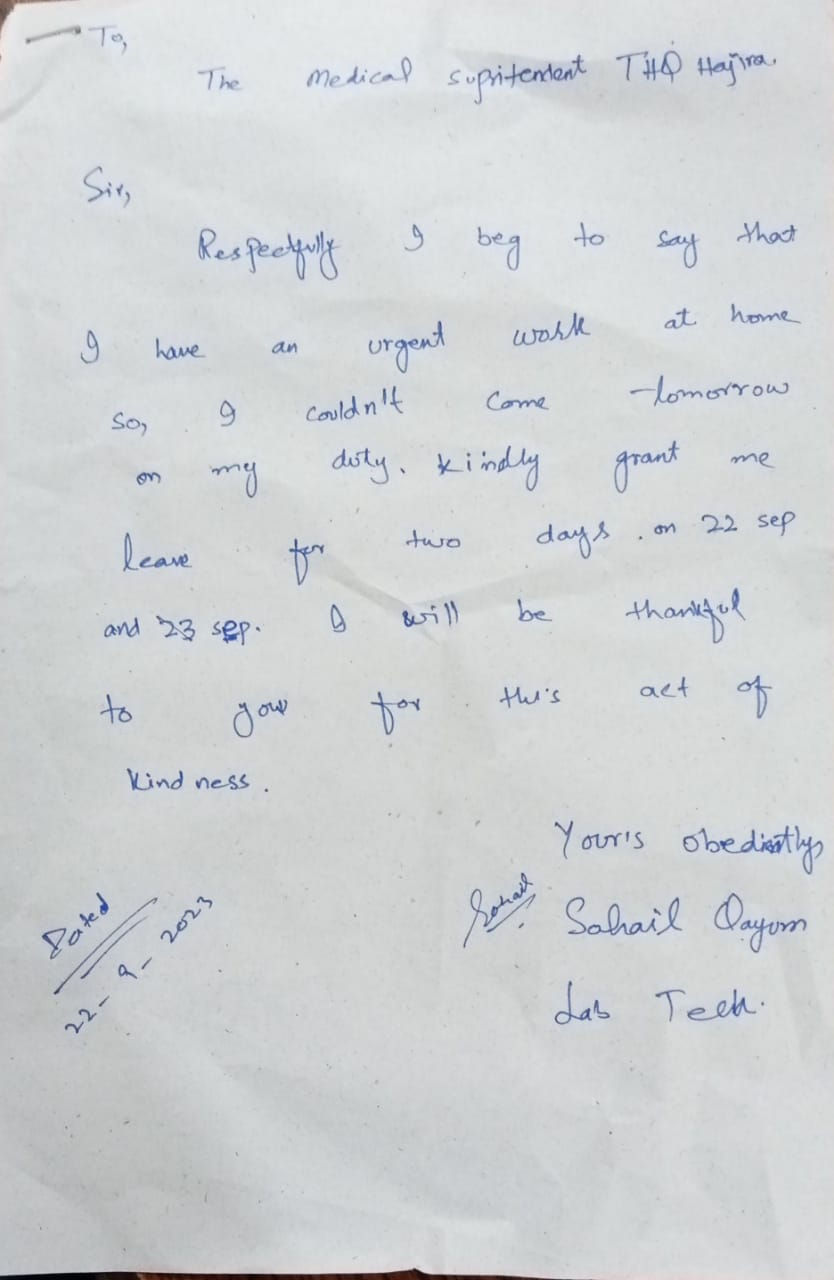 To,
The Medical Supritendent THQ Hajira.
Sir,
Respectfully I beg to say that
I have an urgent work at home
so, I couldn't come tomorrow
on my duty. kindly grant me
leave for two days. on 22 sep
and 23 sep. I will be thankful
to you for this act of
kindness.
Your's obediently
Sohail
Sahail Qayum
Lab Tech.
Dated
22-9-2023